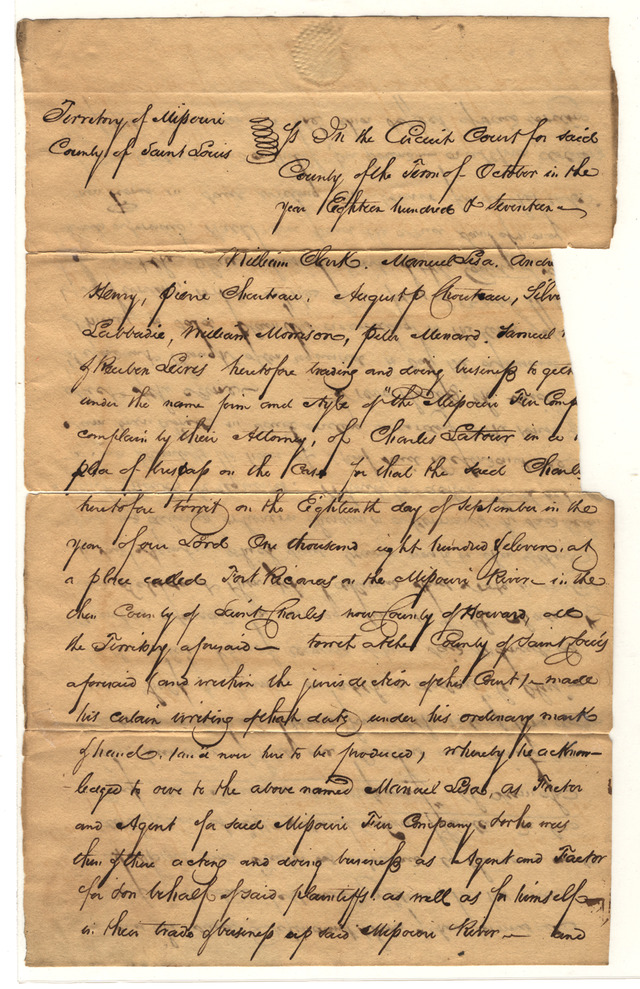 Territory of Missouri
County of Saint Louis
Ss In the Circuit Court for said
County, of the Term of October in the
year Eighteen hundred & Seventeen
William Clark. Manuel Lisa. Andr
Henry, Pierre Chouteau. August P Chouteau, Silv
Labbadie, William Morrison, Peter Menard. Samuel
& Reuben Lewis heretofore trading and doing business togeth
under the name firm and style of "the Missouri Fur Comp
complain by their Attorney, of Charles Latour in a
plea of trespass on the Case for that the said Charl
heretofore towit on the Eighteenth day of September in the
year of our Lord One thousand eight hundred & eleven, at
a place called Fort Ricaras on the Missouri River in the
then County of Saint Charles now County of Howard, all
the Territory aforesaid towit at the County of Saint Louis
aforesaid (and within the jurisdiction of this Court) made
his certain writing of that date, under his ordinary mark
of hand, and now here to be produced, whereby he acknow-
ledged to owe to the above named Manuel Lisa, as Factor
and Agent for said Missouri Fur Company. & who was
then & there acting and doing business as Agent and Factor
for & on behalf of said plaintiffs as well as for himself
in their trade & business up said Missouri River and